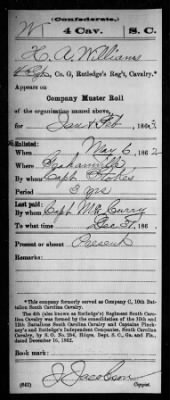 (Confederate.)
W 4 Cav. S. C.
H. A. Williams
Co. G, Rutledge's Reg't, Cavalry.*
Appears on
Company Muster Roll
of the organization named above,
for Jan & Feb, 186
Enlisted:
When May 6, 1862
Where Grahamville
By whom Capt Stokes
Period 3 yrs
Last paid:
By whom Capt McCurry
To what time Dec 31, 186
Present or absent Present
Remarks:
*This company formerly served as Company C, 10th Battalion South Carolina Cavalry.
The 4th (also known as Rutledge's) Regiment South Carolina Cavalry was formed by the consolidation of the 10th and 12th Battalions South Carolina Cavalry and Captains Pinckney's and Rutledge's Independent Companies, South Carolina Cavalry, by S. O. No. 254, Hdqrs. Dept. S. C., Ga. and Fla., dated December 16, 1862.
Book mark:
(642) J. Jacobson
Copyist.